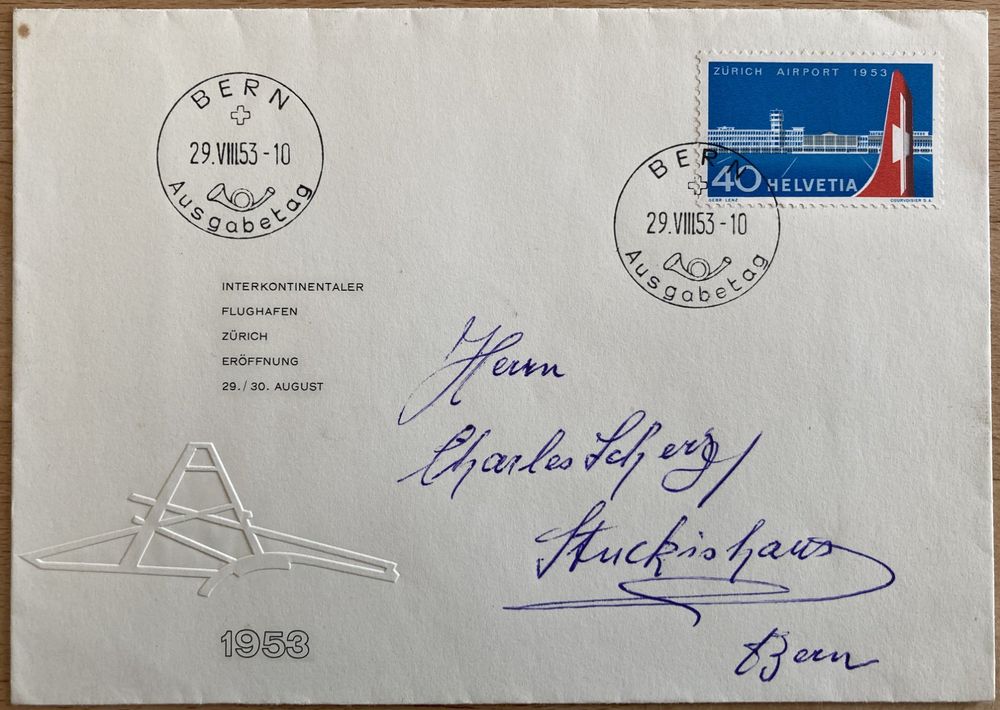 BERN
29.VIII.53-10
Ausgabetag
ZÜRICH AIRPORT 1953
40 HELVETIA
GEBR. LENZ
COURVOISIER S.A.
BERN
29.VIII.53-10
Ausgabetag
INTERKONTINENTALER
FLUGHAFEN
ZÜRICH
ERÖFFNUNG
29./30. AUGUST
1953
Herrn
Charles Scherz
Stuckishaus
Bern